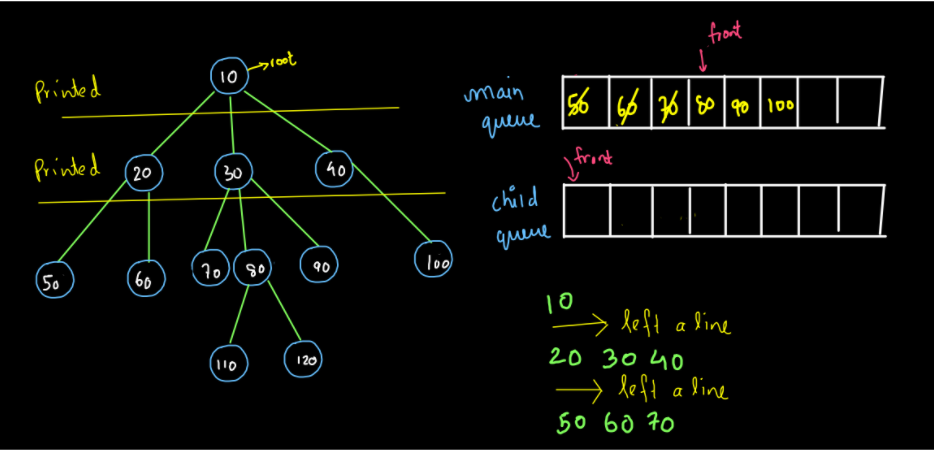 Printed
10 → root
Printed
20 30 40
50 60 70 80 90 100
110 120
front
main queue
50 60 70 80 90 100
front
child queue
10
→ left a line
20 30 40
→ left a line
50 60 70